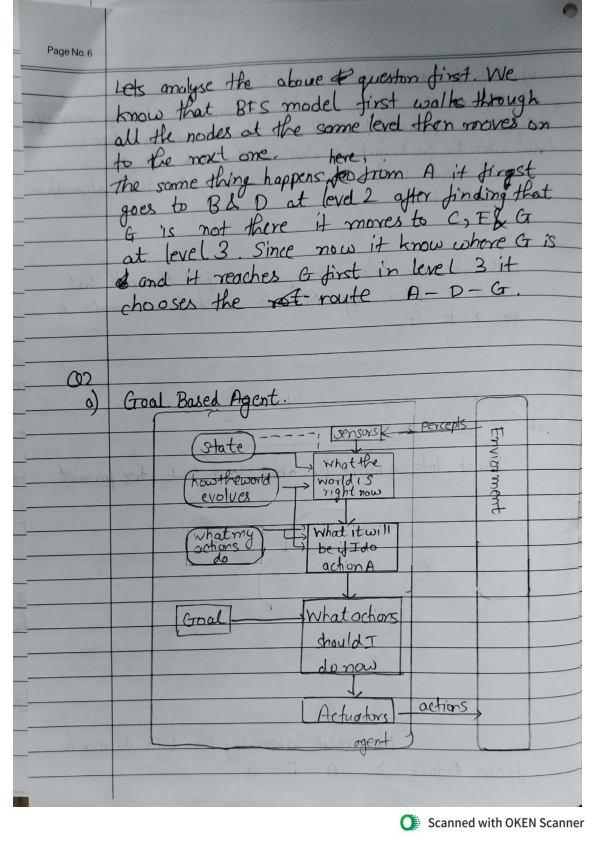 Page No. 6
Lets analyse the above queston first. We
know that BFS model first walks through
all the nodes at the same level then moves on
to the next one.
The same thing happens here, from A it first
goes to B & D at level 2 after finding that
G is not there it moves to C, E & G
at level 3. Since now it know where G is
and it reaches G first in level 3 it
chooses the route A - D - G.
Q2
a) Goal Based Agent.
sensors
percepts
Environment
state
what the
world is
right now
how the world
evolves
what my
actions
do
What it will
be if I do
action A
Goal
What actions
should I
do now
Actuators
actions
agent
Scanned with OKEN Scanner